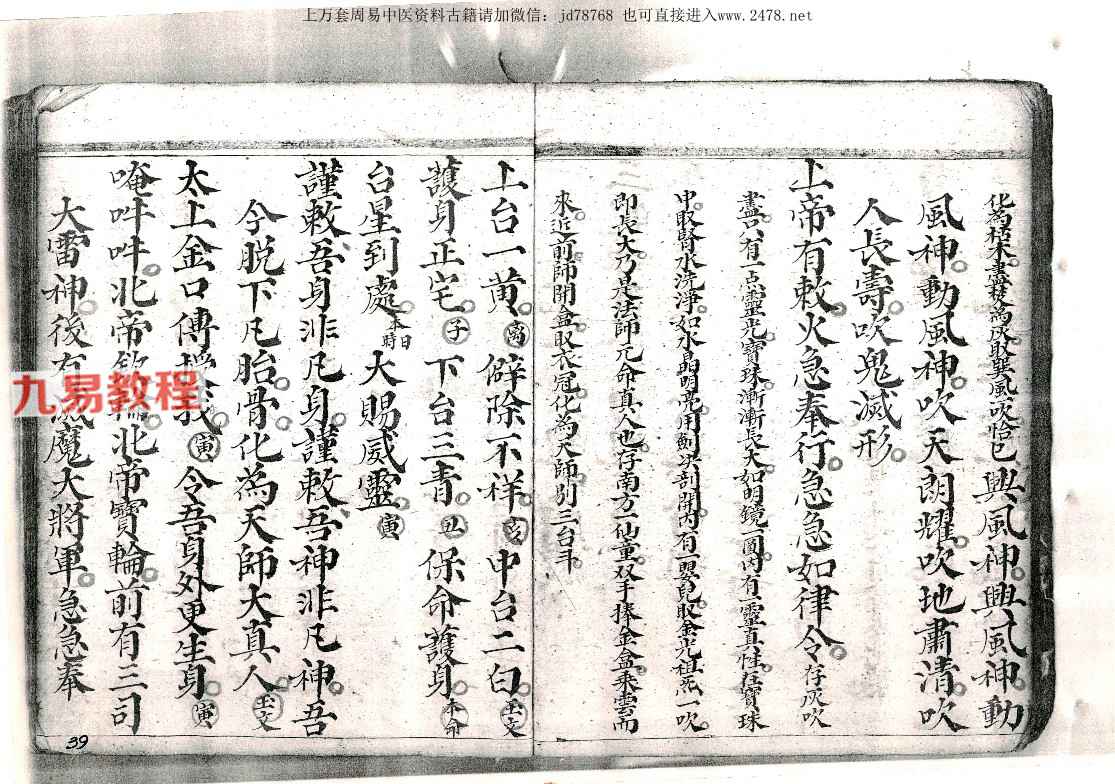 上万套周易中医资料古籍请加微信：jd78768 也可直接进入www.2478.net
化為枯木盡發為灰取巽風吹恰已興風神興風神動
風神動風神吹天朗耀吹地肅清吹
人長壽吹鬼滅形
上帝有敕火急奉行急急如律令存灰吹
盡只有一点靈光寶珠漸漸長大如明鏡一面內有靈真性在寶珠
中取腎水澆淨如水晶明亮用劍訣剖開內有一嬰兒取金光祖炁一吹
即長大乃是法師元命真人也存南方一仙童双手捧金盒乘雲而
來近前師開盒取衣冠化為天師別三台斗
上台一黄离僻除不祥亥中台二白玉文
護身正宅子下台三青丑保命護身本命
台星到處本日時大賜威靈寅
謹敕吾身非凡身謹敕吾神非凡神吾
今脱下凡胎骨化為天師大真人玉文
太上金口傳我寅令吾身外更生身寅
唵吽吽北帝北帝寶輪前有三司
大雷神後有魔大將軍急急奉
九易教程
39